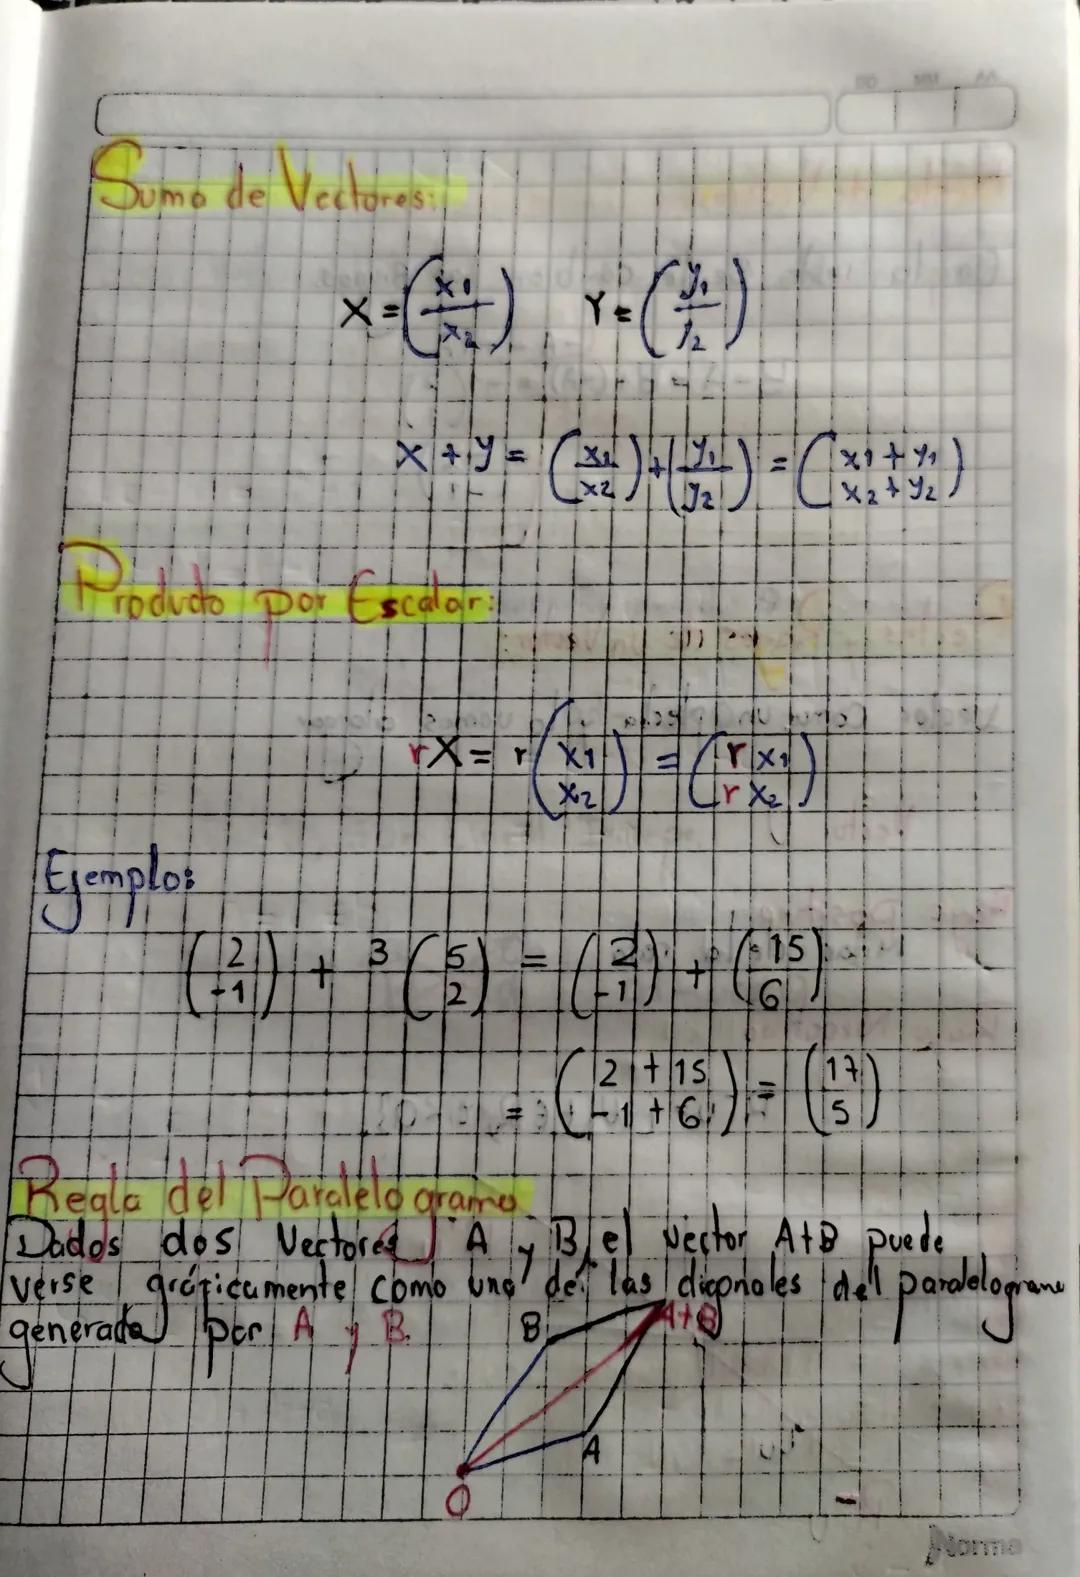 Suma de Vectores:
X = (x1 / x2) Y = (y1 / y2)
x + y = (x1 / x2) + (y1 / y2) = (x1 + y1 / x2 + y2)
Producto por Escalar:
rX = r (x1 / x2) = (r x1 / r x2)
Ejemplo:
(2 / -1) + 3 (5 / 2) = (2 / -1) + (15 / 6)
= (2 + 15 / -1 + 6) = (17 / 5)
Regla del Paralelogramo
Dados dos Vectores A y B, el vector A+B puede
verse gráficamente como una de las diagonales del paralelogramo
generada por A y B.
B A+B
A
O
Norma